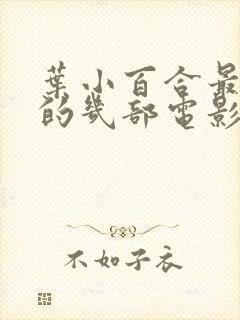 葉小百合最
的幾部電影
不如子衣